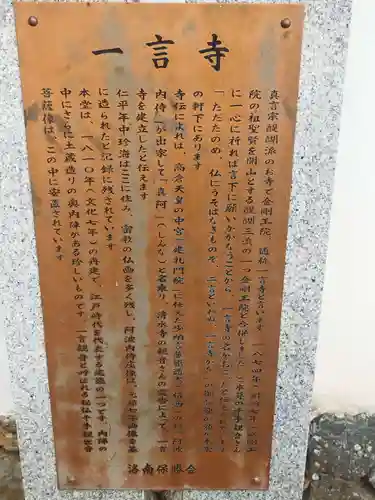 一言寺
真言宗醍醐派のお寺で金剛王院、通称一言寺といいます。一八七四年(明治七年)に金剛王
院の祖聖賢を開山とする醍醐三流の一つ金剛王院と合併しました。本尊の千手観音さん
に一心に祈れば言下に願いがかなうことから、一言寺の名が
「ただたのめ、仏にうそはなきものぞ、二言といわぬ、一言寺
の軒下にあります
寺伝によれば、高倉天皇の中宮 建礼門院に仕えた少納言藤原通憲(信西)の娘、阿波
内侍が出家して「真阿」(しんな)と名乗り、清水寺の観音さんの霊告によって、一言
寺を建立したと伝えます
仁平年中珍海はここに住み、密教の仏画を多く残し、阿波内侍座像は、元禄七年
に造られたと記録に残されています
本堂は、一八一〇年(文化七年)の再建で、江戸時代を代表する建築の一つです、内陣の
中にさらに土蔵造りの奥内陣がある珍しいものです、一言観音と呼ばれる秘仏千手観世音
菩薩像は、この中に安置されています
洛南保勝会